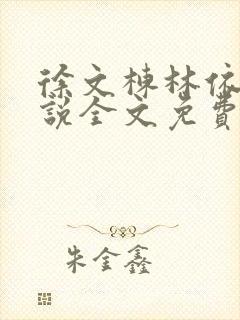 徐文栋林依
說全文免費
朱金鑫